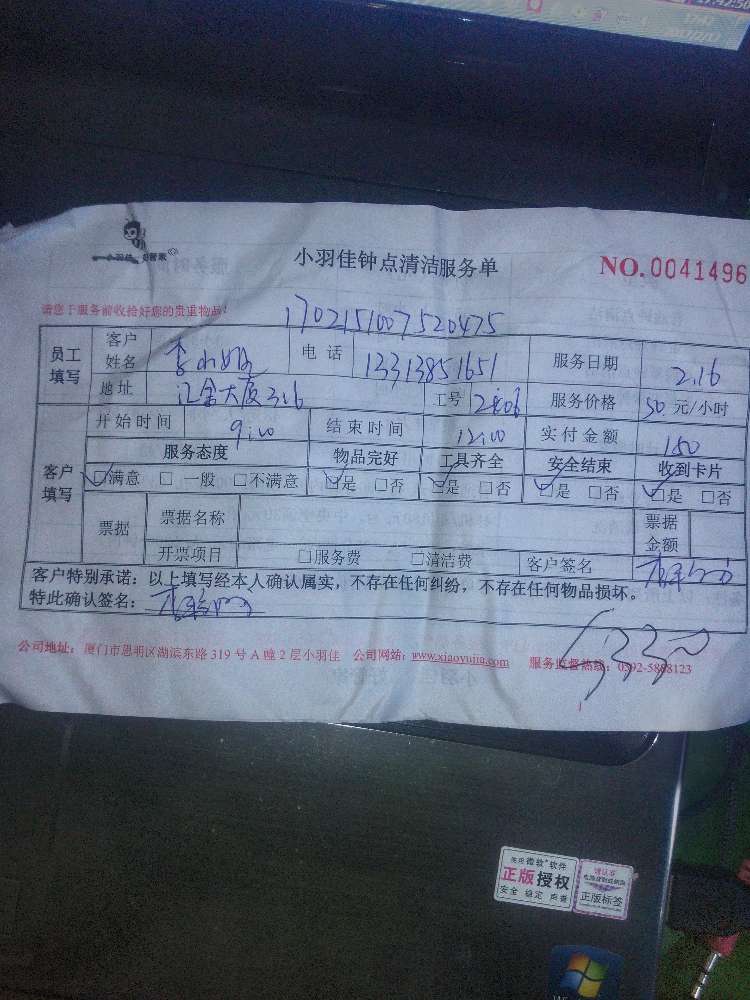 小羽佳 好管家
小羽佳钟点清洁服务单
NO.0041496
请您于服务前收拾好您的贵重物品!
1702151007520475
员工填写 客户姓名 李小姐 电话 13313851651 服务日期 2.16
地址 汇金大厦316 工号 2806 服务价格 50 元/小时
客户填写 开始时间 9:00 结束时间 12:00 实付金额 150
服务态度 物品完好 工具齐全 安全结束 收到卡片
☑满意 □一般 □不满意 ☑是 □否 ☑是 □否 ☑是 □否 ☑是 □否
票据 票据名称 票据金额
开票项目 □服务费 □清洁费 客户签名
客户特别承诺：以上填写经本人确认属实，不存在任何纠纷，不存在任何物品损坏。
特此确认签名：
公司地址：厦门市思明区湖滨东路 319 号 A 幢 2 层小羽佳 公司网站：www.xiaoyujia.com 服务监督热线：0592-5888123
微软®软件
正版授权
安全 稳定 声誉
正版标签